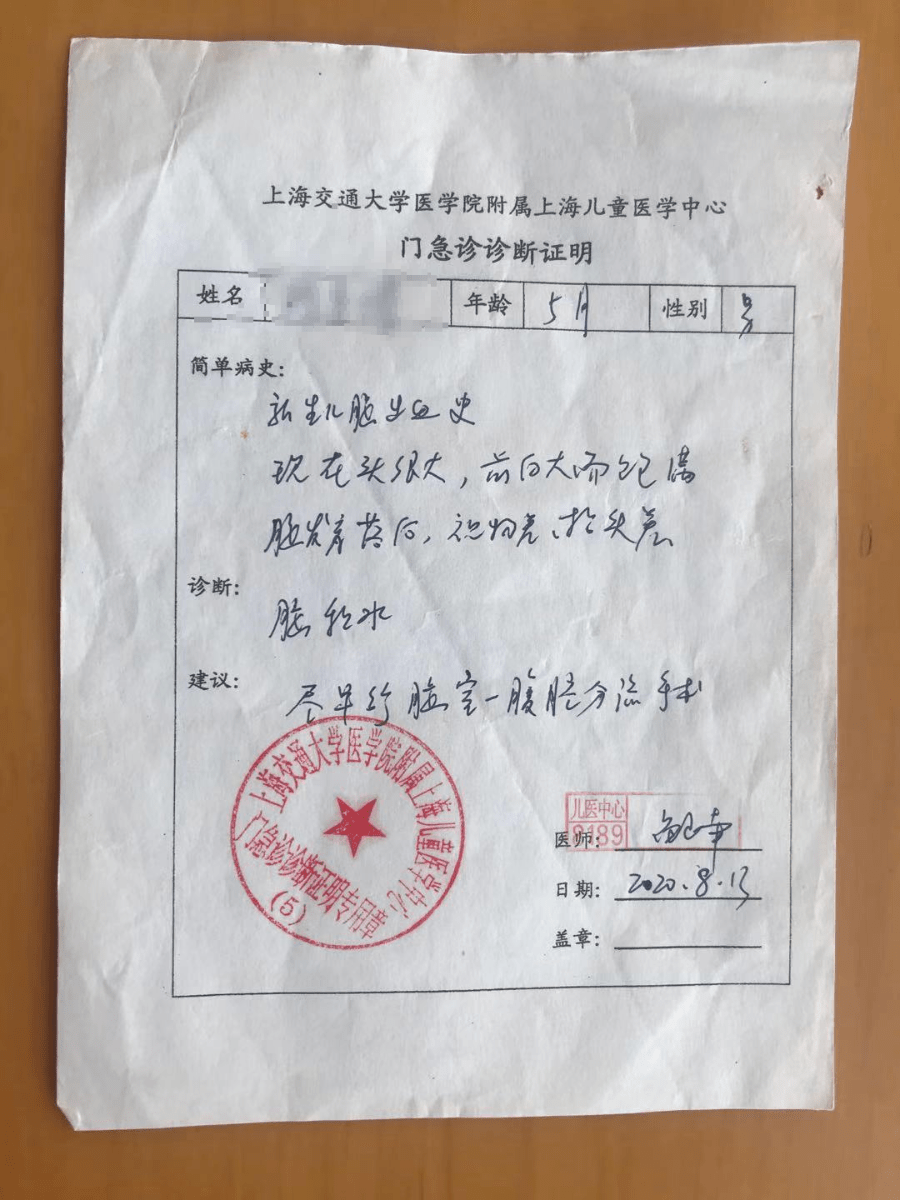 上海交通大学医学院附属上海儿童医学中心
门急诊诊断证明
姓名 年龄 5月 性别 男
简单病史:
新生儿脑出血史
现在头很大，前囟大而饱满
脑发育落后，视物差、抬头差
诊断:
脑积水
建议:
尽早行脑室-腹腔分流手术
上海交通大学医学院附属上海儿童医学中心
门急诊诊断证明专用章
(5)
儿医中心
9189
医师:
日期: 2020.8.13
盖章: